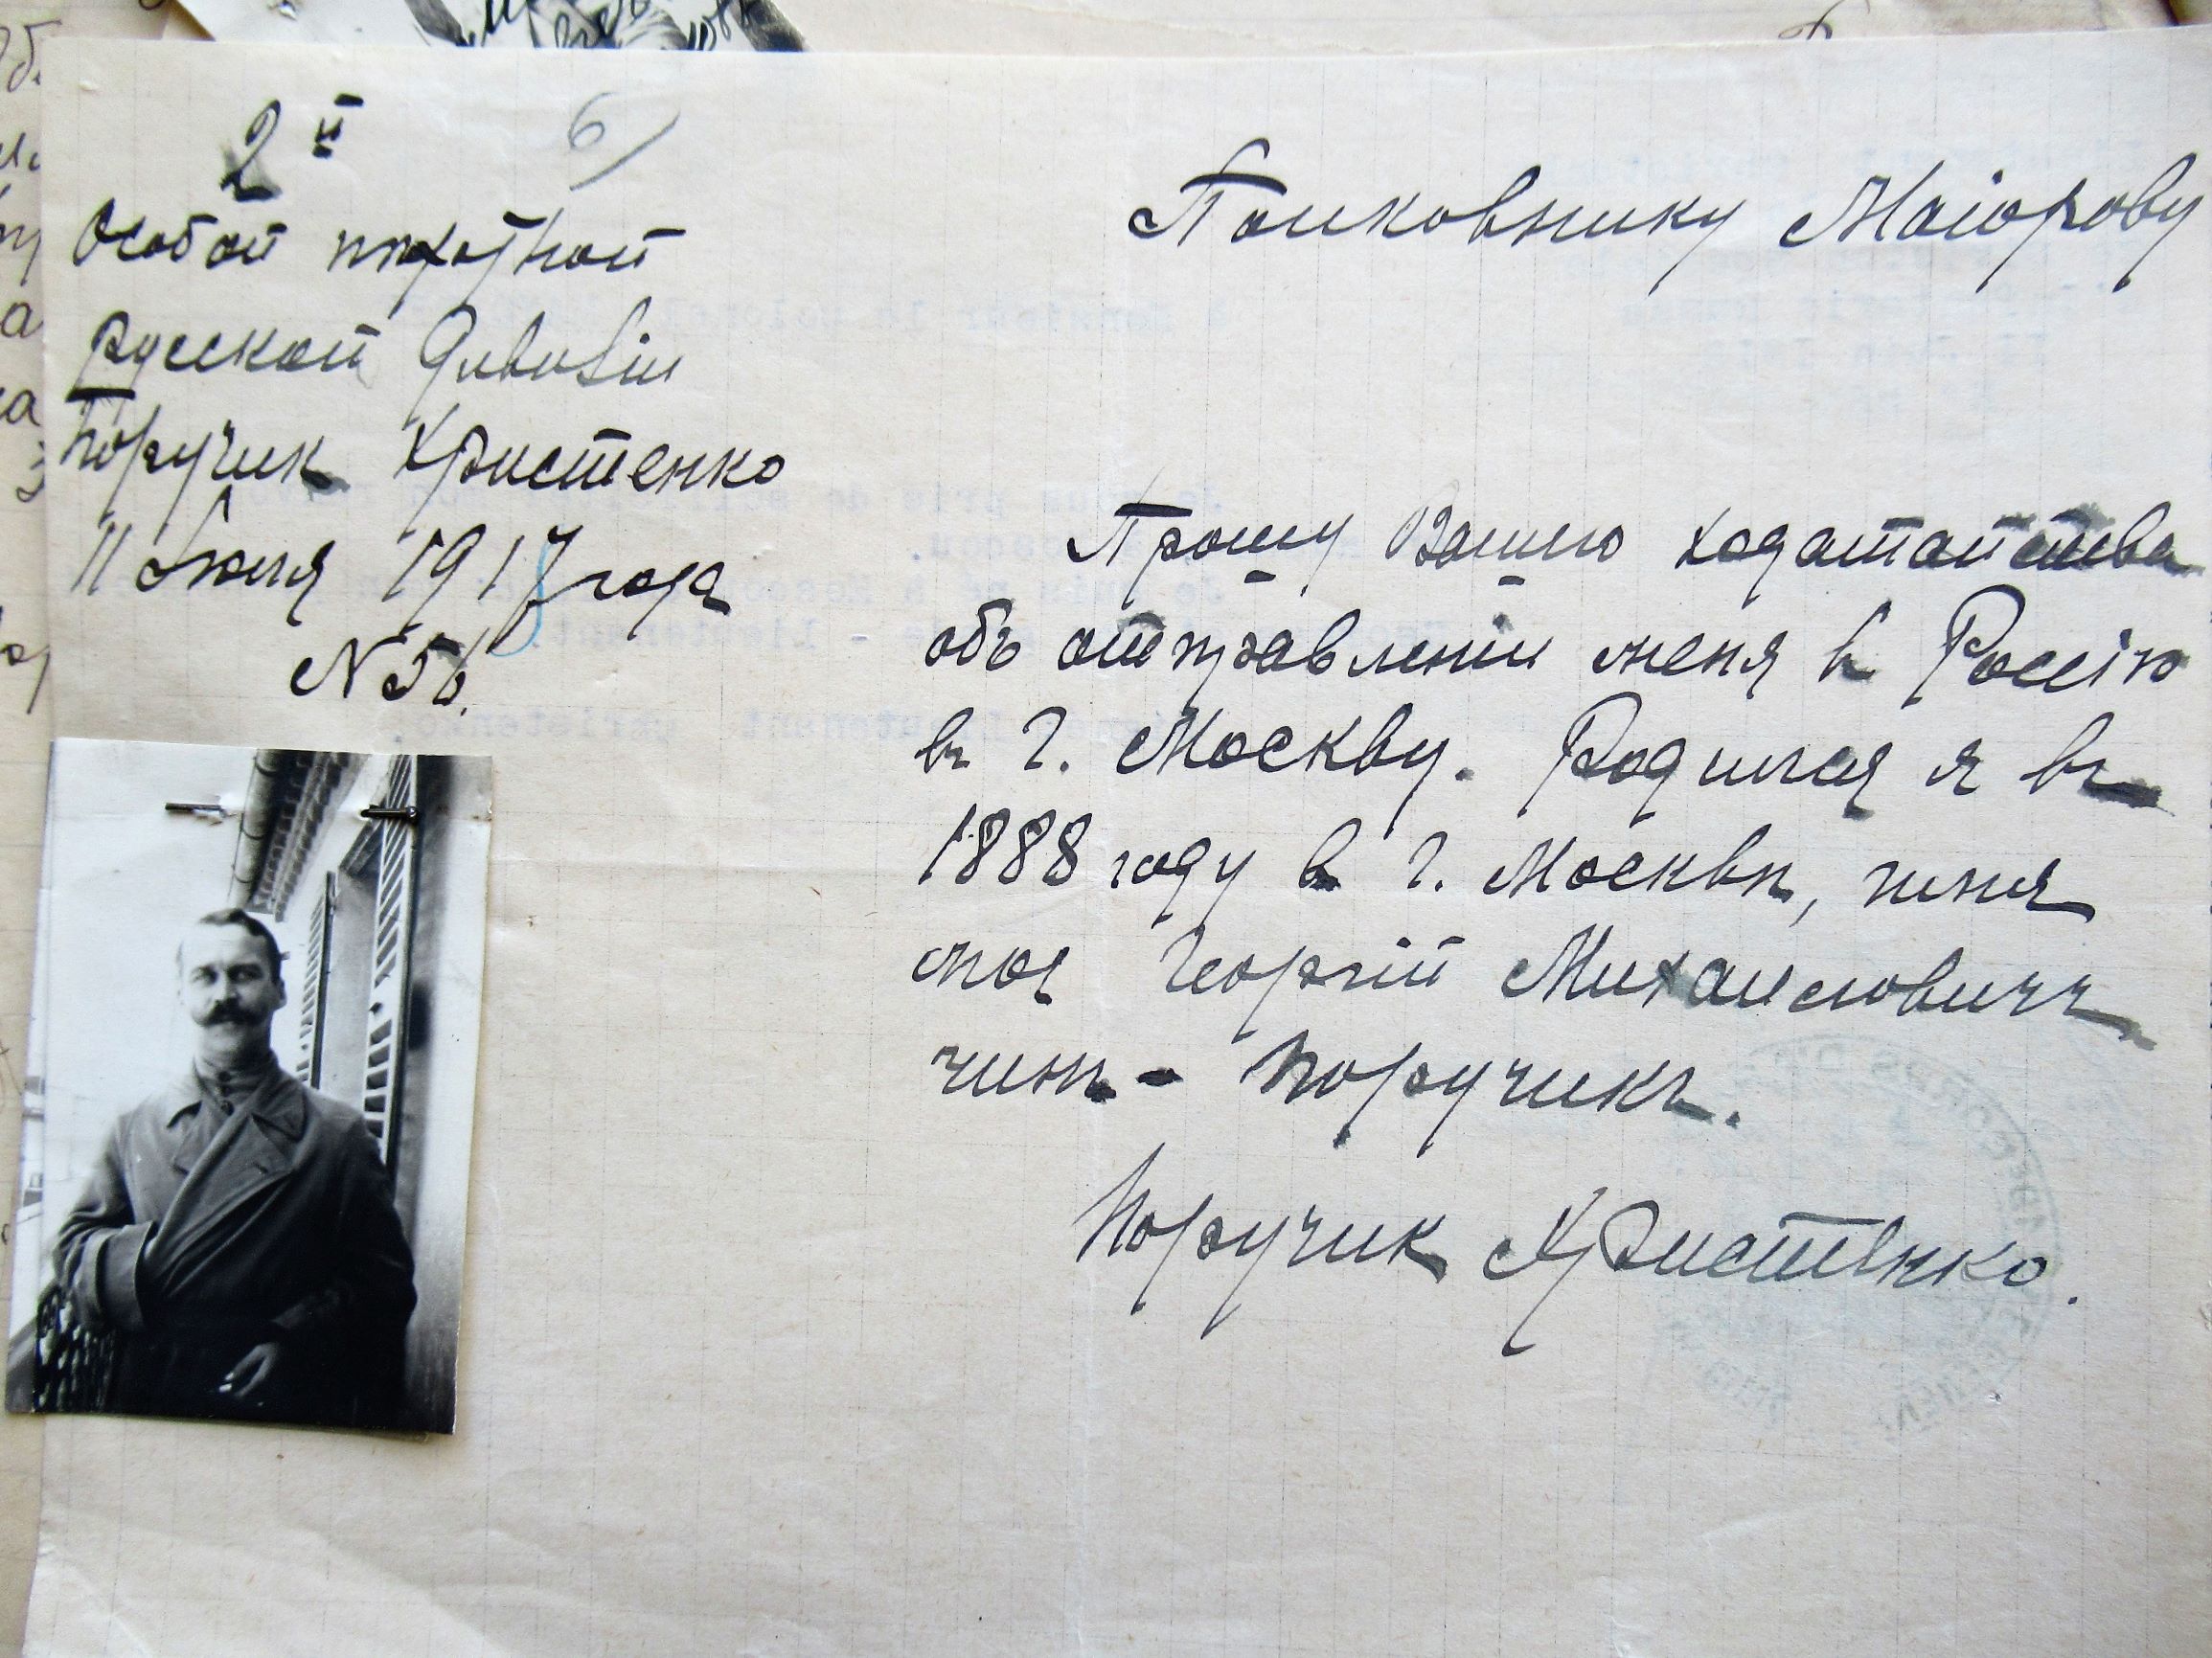 2й
6
Особой пехотной
русской дивизіи
Поручик Христенко
11 Іюня 1917 года
N 56.
Полковнику Маіорову
Прошу Вашего ходатайства
объ отправленіи меня в Россію
въ г. Москву. Родился я въ
1888 году в г. Москвѣ, имя
мое Георгій Михаиловичъ
чинъ - поручикъ.
Поручик Христенко.